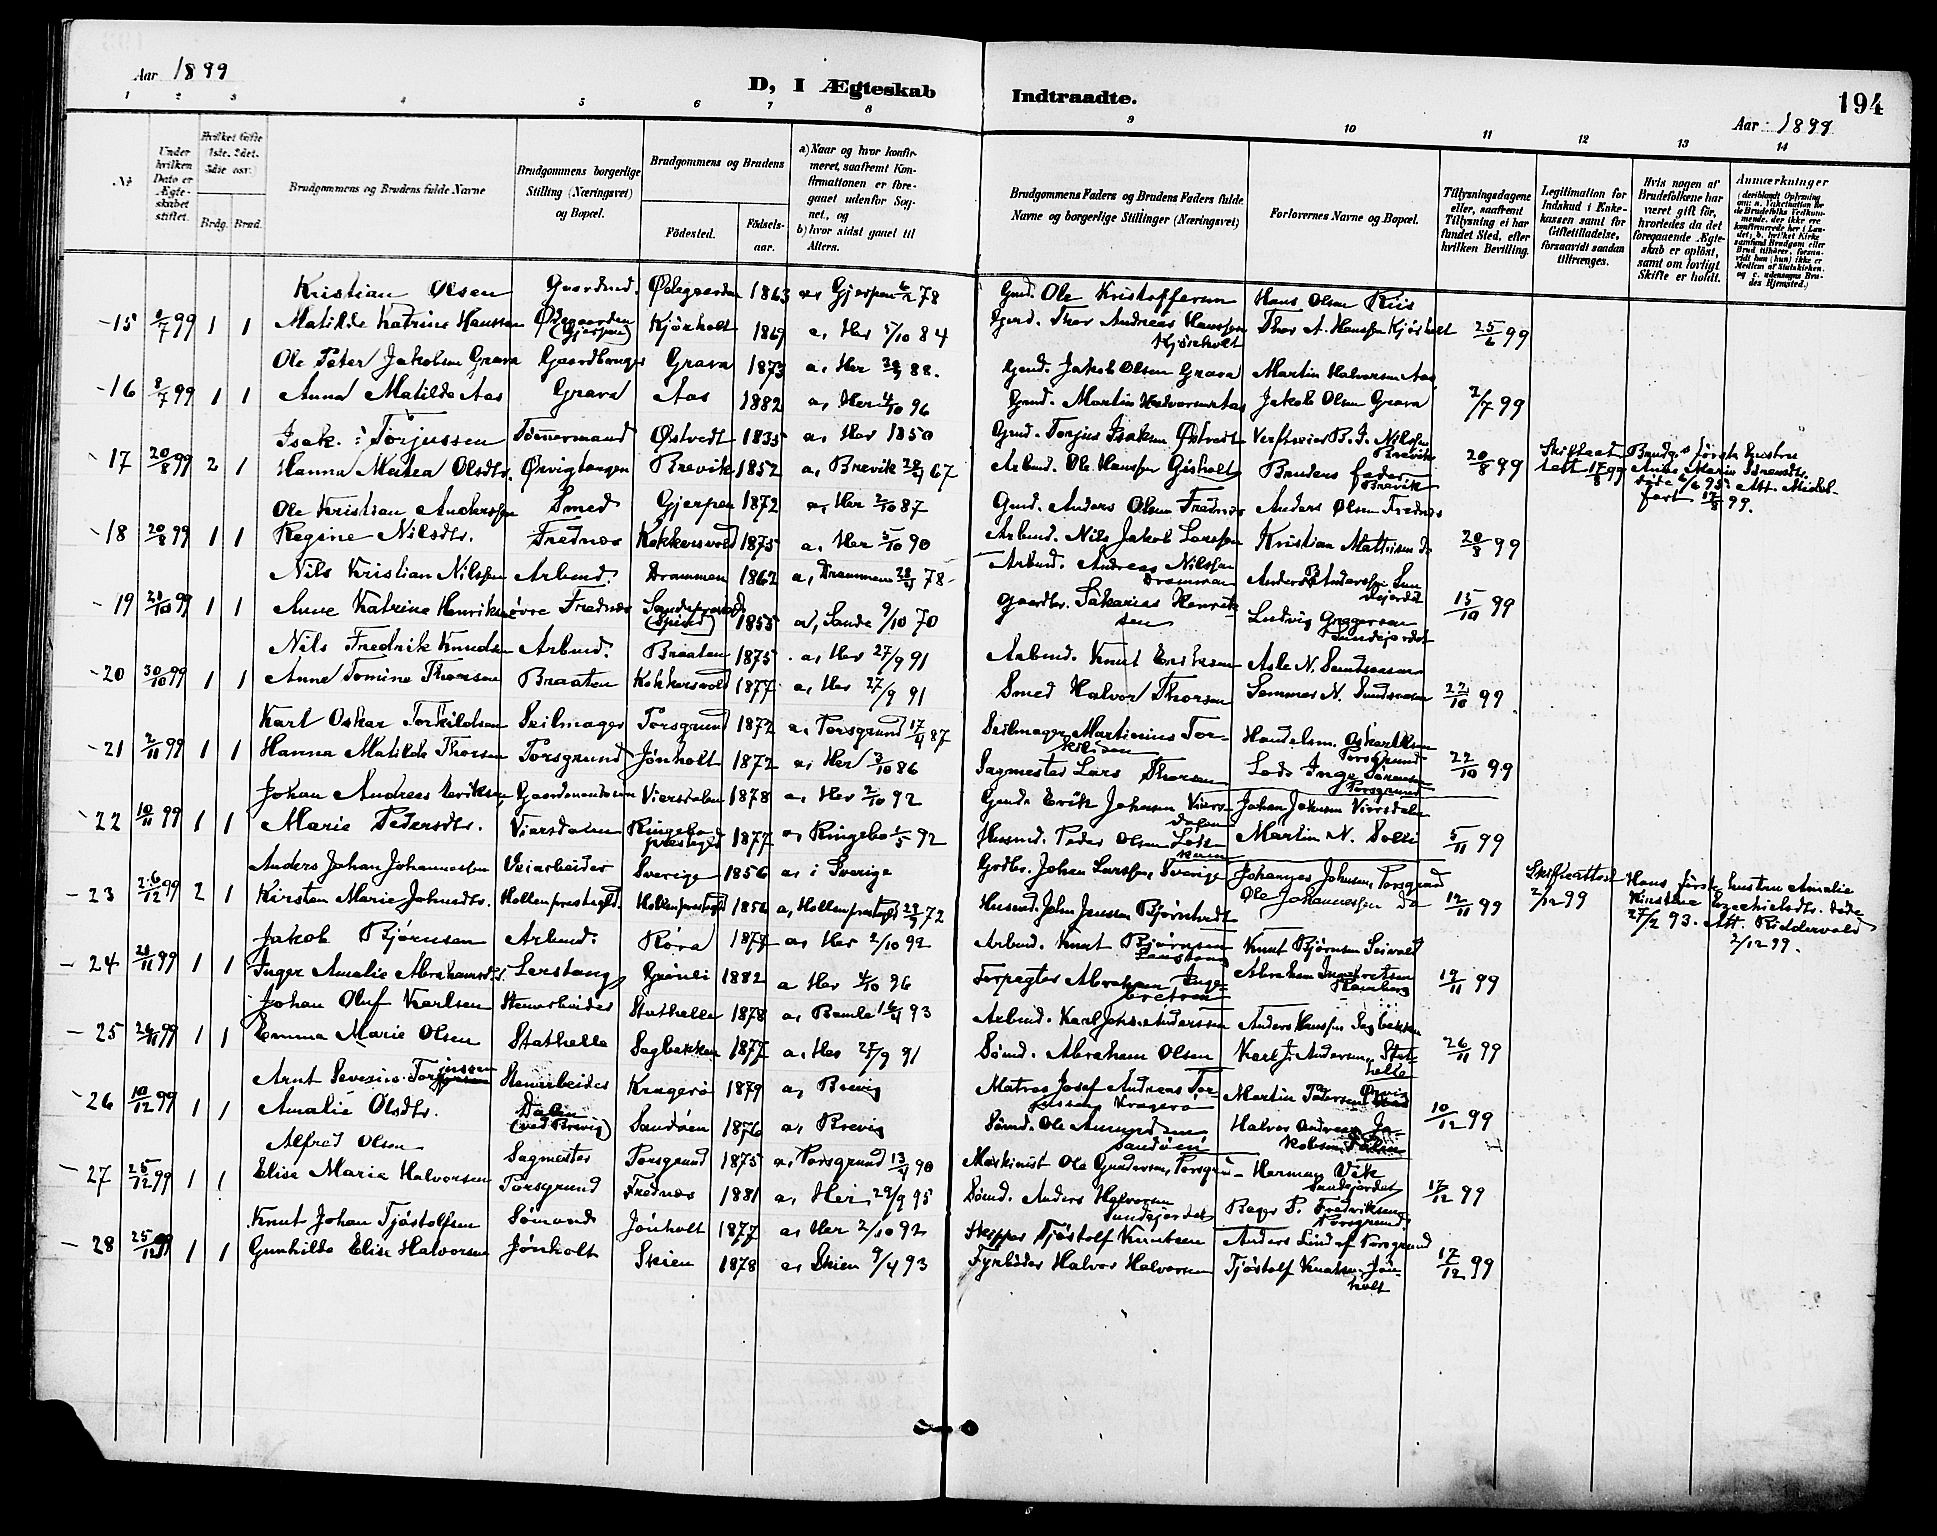 Aar 1899
D, I Ægteskab Indtraadte.
194
Aar 1899
1 2 3 4 5 6 7 8 9 10 11 12 13 14
Nr
Under hvilken Dato er Ægteskabet stiftet.
Hvilket Gifte 1ste. 2det. 3die osv.)
Brdg. Brud.
Brudgommens og Brudens fulde Navne
Brudgommens borgerlige Stilling (Næringsvei) og Bopæl.
Brudgommens og Brudens
Fødested. Fødselsaar.
a) Naar og hvor konfirmeret, saafremt Konfirmationen er foregaaet udenfor Sognet, og
b) hvor sidst gaaet til Alters.
Brudgommens Faders og Brudens Faders fulde Navne og borgerlige Stillinger (Næringsvei)
Forlovernes Navne og Bopæl.
Tillysningsdagene eller, saafremt Tillysning ei har fundet Sted, efter hvilken Bevilling.
Legitimation for Indskud i Enkekassen samt for Giftetilladelse, forsaavidt saadan tiltrænges.
Hvis nogen af Brudefolkene har været gift før, hvorledes da det foregaaende Ægteskab er opløst, samt om lovligt Skifte er holdt.
Anmærkninger
Kristian Olsen Gaardmd. Ødegaarden 1863 a, Gjerpen 78 Gmd. Ole Kristoffersen Hans Olsen Riis
15 2/7 99 1 1 Matilde Katrine Hanssen Ødegaarden (Gjerpen) Kjørholt 1869 a, Her 5/10 84 Gmd. Thor Andreas Hanssen Kjørholt Thor A. Hanssen Kjørholt 25/6 99
Ole Peter Jakobsen Grava Gaardbruger Grava 1873 a, Her 88. Gmd. Jakob Olsen Grava Martin Halvorsen Aas
16 8/7 99 1 1 Anna Matilde Aas Grava Aas 1882 a, Her 4/10 96 Gmd. Martin Halvorsen Aas Jakob Olsen Grava 2/7 99
Isak Torjussen Tømmermand Østvedt 1835 a, Her 1850 Gmd. Torjus Isaksen Østvedt Verftseier B. J. Nilssen Brevik
17 20/8 99 2 1 Hanna Mathea Olsdtr. Ørvigtangen Brevik 1852 a, Brevik 67 Arbmd. Ole Hanssen Gisholt Brudens fader Brevik 20/8 99 Skifteattest 17/8 99 Brudg.s første hustru Anne Marie Sørensdtr. døde 6/6 95. Att. Middelfart 12/8 99.
Ole Kristian Anderssen Smed Gjerpen 1872 a, Her 2/10 87 Gmd. Anders Olsen Frednæs Anders Olsen Frednæs
18 20/8 99 1 1 Regine Nilsdtr. Frednæs Kokkersvold 1875 a, Her 5/10 90 Arbmd. Nils Jakob Larssen Kristian Mathisen do 20/8 99
Nils Kristian Nilssen Arbmd. Drammen 1862 a, Drammen 78 Arbmd. Andreas Nilssen Drammen Anders Anderssen Sundejordet
19 21/10 99 1 1 Anne Katrine Henriksen øvre Frednæs 1855 a, Sande 9/10 70 Gaardbr. Sakarias Henriksen Ludvig Gregersen Sundejordet 15/10 99
Nils Fredrik Knudsen Arbmd. Braaten 1875 a, Her 27/9 91 Arbmd. Knut Eriksen Asle N. Sundsaasen
20 30/10 99 1 1 Anne Tomine Thorsen Braaten Kokkersvold 1877 a, Her 27/9 91 Smed Halvor Thorsen N. Sundsaasen 22/10 99
Karl Oskar Torkildsen Seilmager Porsgrund 1872 a, Porsgrund 17/4 87 Seilmager Martinius Torkildsen Handelsm. Oskar Porsgrund
21 2/11 99 1 1 Hanna Matilde Thorsen Porsgrund Jønholt 1872 a, Her 3/10 86 Sagmester Lars Thorsen Lods Inge Sørensen Porsgrund 22/10 99
Johan Andreas Eriksen Viersdalen 1878 a, Her 2/10 92 Gmd. Erik Johnsen Viersdalen Johan Johnsen Viersdalen
22 10/11 99 1 1 Marie Pedersdtr. Viersdalen Ringebo prestegjd 1877 a, Ringebo 92 Husmd. Peder Olsen Martin N. Solli 5/11 99
Anders Johan Johannessen Veiarbeider Sverige 1856 a, i Sverige Gdbr. Johan Larssen, Sverige Johannes Johnsen, Porsgrund
23 26/12 99 2 1 Kirsten Marie Johnsdtr. Hollen prestegjd. Hollen prestegjd 1856 a, Hollen prestegjd 72 Husmd. John Jenssen Bjørntvedt Ole Johannessen do 12/11 99 Skifteattest 2/12 99 Hans første hustru Amalie Kirstine Ezechielsdtr. døde 27/2 93. Att. Riddervold 2/12 99.
Jakob Bjørnsen Arbmd. Røra 1877 a, Her 2/10 92 Arbmd. Knut Bjørnsen Knut Bjørnsen
24 99 1 1 Inger Amalie Abrahamsdtr. Lerstang Grønli 1882 a Her 4/10 96 Forpagter Abraham Ingebretsen Abraham Ingebretsen 19/11 99
Johan Oluf Karlsen Stenarbeider Stathelle 1878 a, Bamle 93 Arbmd. Karl Johan Anderssen Anders Hanssen Sagbakken
25 26/11 99 1 1 Emma Marie Olsen Stathelle Sagbakken 1877 a, Her 27/9 91 Sømd. Abraham Olsen Karl J. Andersen, Stathelle 26/11 99
Arnt Severin Torjussen Stenarbeider Kragerø 1879 a, Brevig Matros Josef Andreas Torjussen Kragerø Martin Pedersen Ørvig
26 10/12 99 1 1 Amalie Olsdtr. Dalen (ved Brevig) Sandøen 1876 a, Brevig Sømd. Ole Amundsen Sandøen Halvor Andreas Jakobsen Dalen 10/12 99
Alfred Olsen Sagmester Porsgrund 1875 a, Porsgrund 13/4 90 Maskinist Ole Gundersen, Porsgrund Herman Vik Sundejordet
27 25/12 99 1 1 Elise Marie Halvorsen Porsgrund Frednæs 1881 a, Her 29/9 95 Sømd. Anders Halvorsen Sundejordet P. Fredriksen Porsgrund 17/12 99
Knut Johan Tjøstolfsen Sømand Jønholt 1877 a, Her 2/10 92 Skipper Tjøstolf Knutsen Anders Lindof Porsgrund
28 25/12 99 1 1 Gunhilde Elise Halvorsen Jønholt Skien 1878 a, Skien 9/4 93 Fyrbøder Halvor Halvorsen Tjøstolf Knutsen, Jønholt 17/12 99